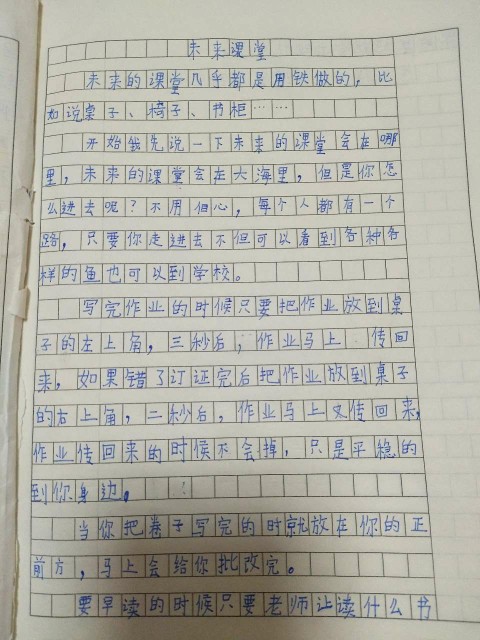 未来课堂
未来的课堂几乎都是用铁做的，比
如说桌子、椅子、书柜……
开始我先说一下未来的课堂会在哪
里，未来的课堂会在大海里，但是你怎
么进去呢？不用但心，每个人都有一个
路，只要你走进去不但可以看到各种各
样的鱼也可以到学校。
写完作业的时候只要把作业放到桌
子的左上角，三秒后，作业马上传回
来，如果错了订证完后把作业放到桌子
的右上角，二秒后，作业马上又传回来，
作业传回来的时候不会掉，只是平稳的
到你身边。
当你把卷子写完的时就放在你的正
前方，马上会给你批改完。
要早读的时候只要老师让读什么书